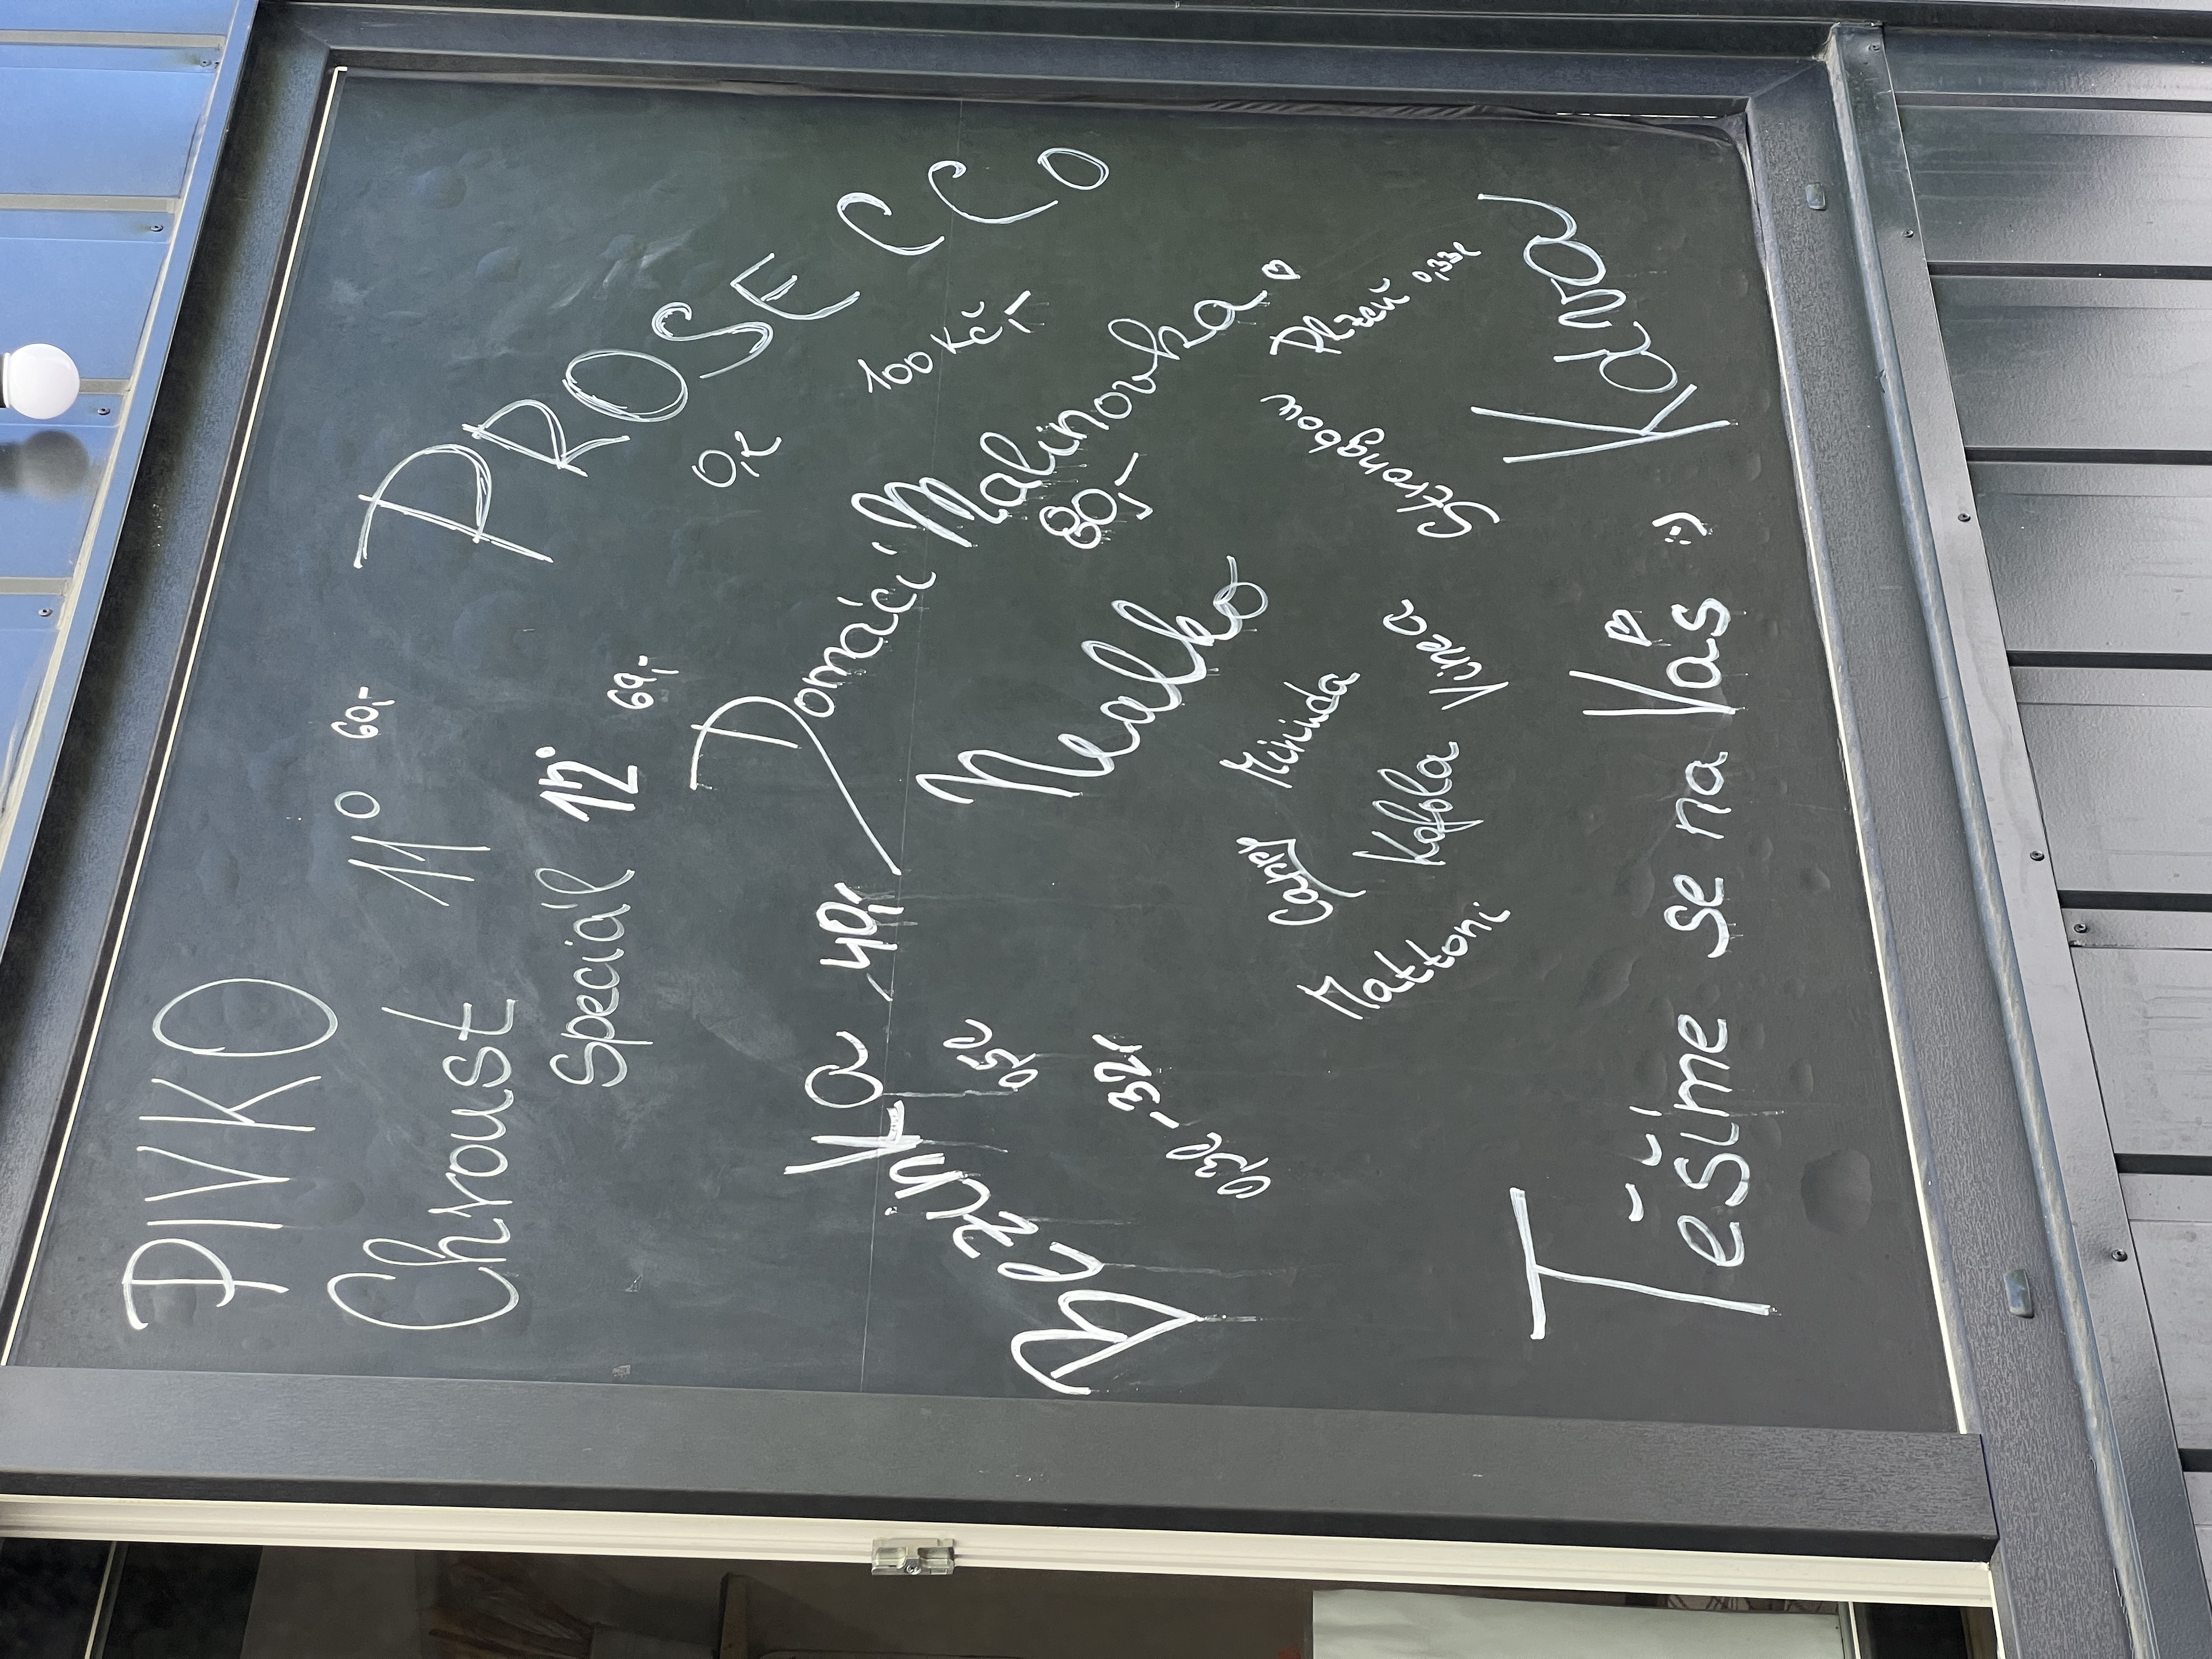 PIVKO
Chroust 11° 60,-
Speciál 12° 69,-
PROSECCO
0,1l 100 Kč,-
Domácí Malinovka ♡
80,-
Bezinka 49,-
0,5l
0,3l - 39,-
Nealko
Strongbow Plzeň 0,33l
Cappy Mirinda
Mattoni Kofola Vinea
Těšíme se na Vás ♡ :-)